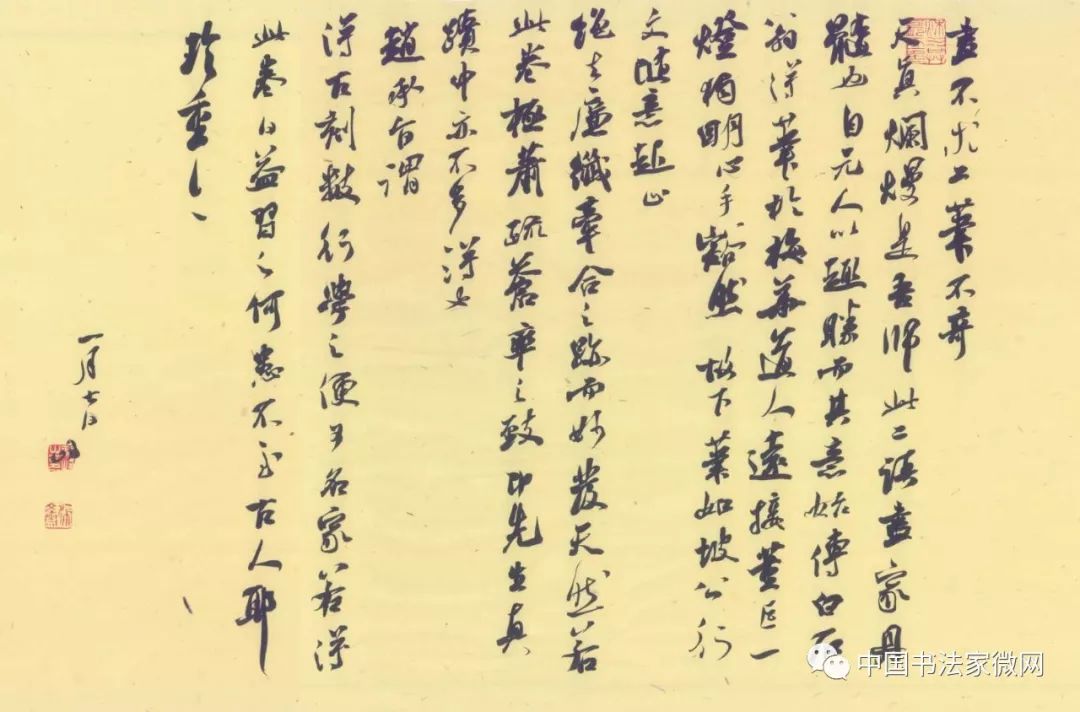 畫不求工筆不奇
天真爛熳是吾師此二語畫家丹
髓也自元人以趣勝而其意始傳白石
翁得筆於梅華道人遠接董巨一
燈獨明心手豁然故下筆如坡公行
文隨意起止
絕去廉纖牽合之跡而妙發天然若
此卷極蕭疏蒼率之致即先生真
蹟中亦不多得也
趙承旨謂
得古刻數行學之便可名家若得
此卷日益習之何患不至古人耶
珍重〻
一月七日
中国书法家微网